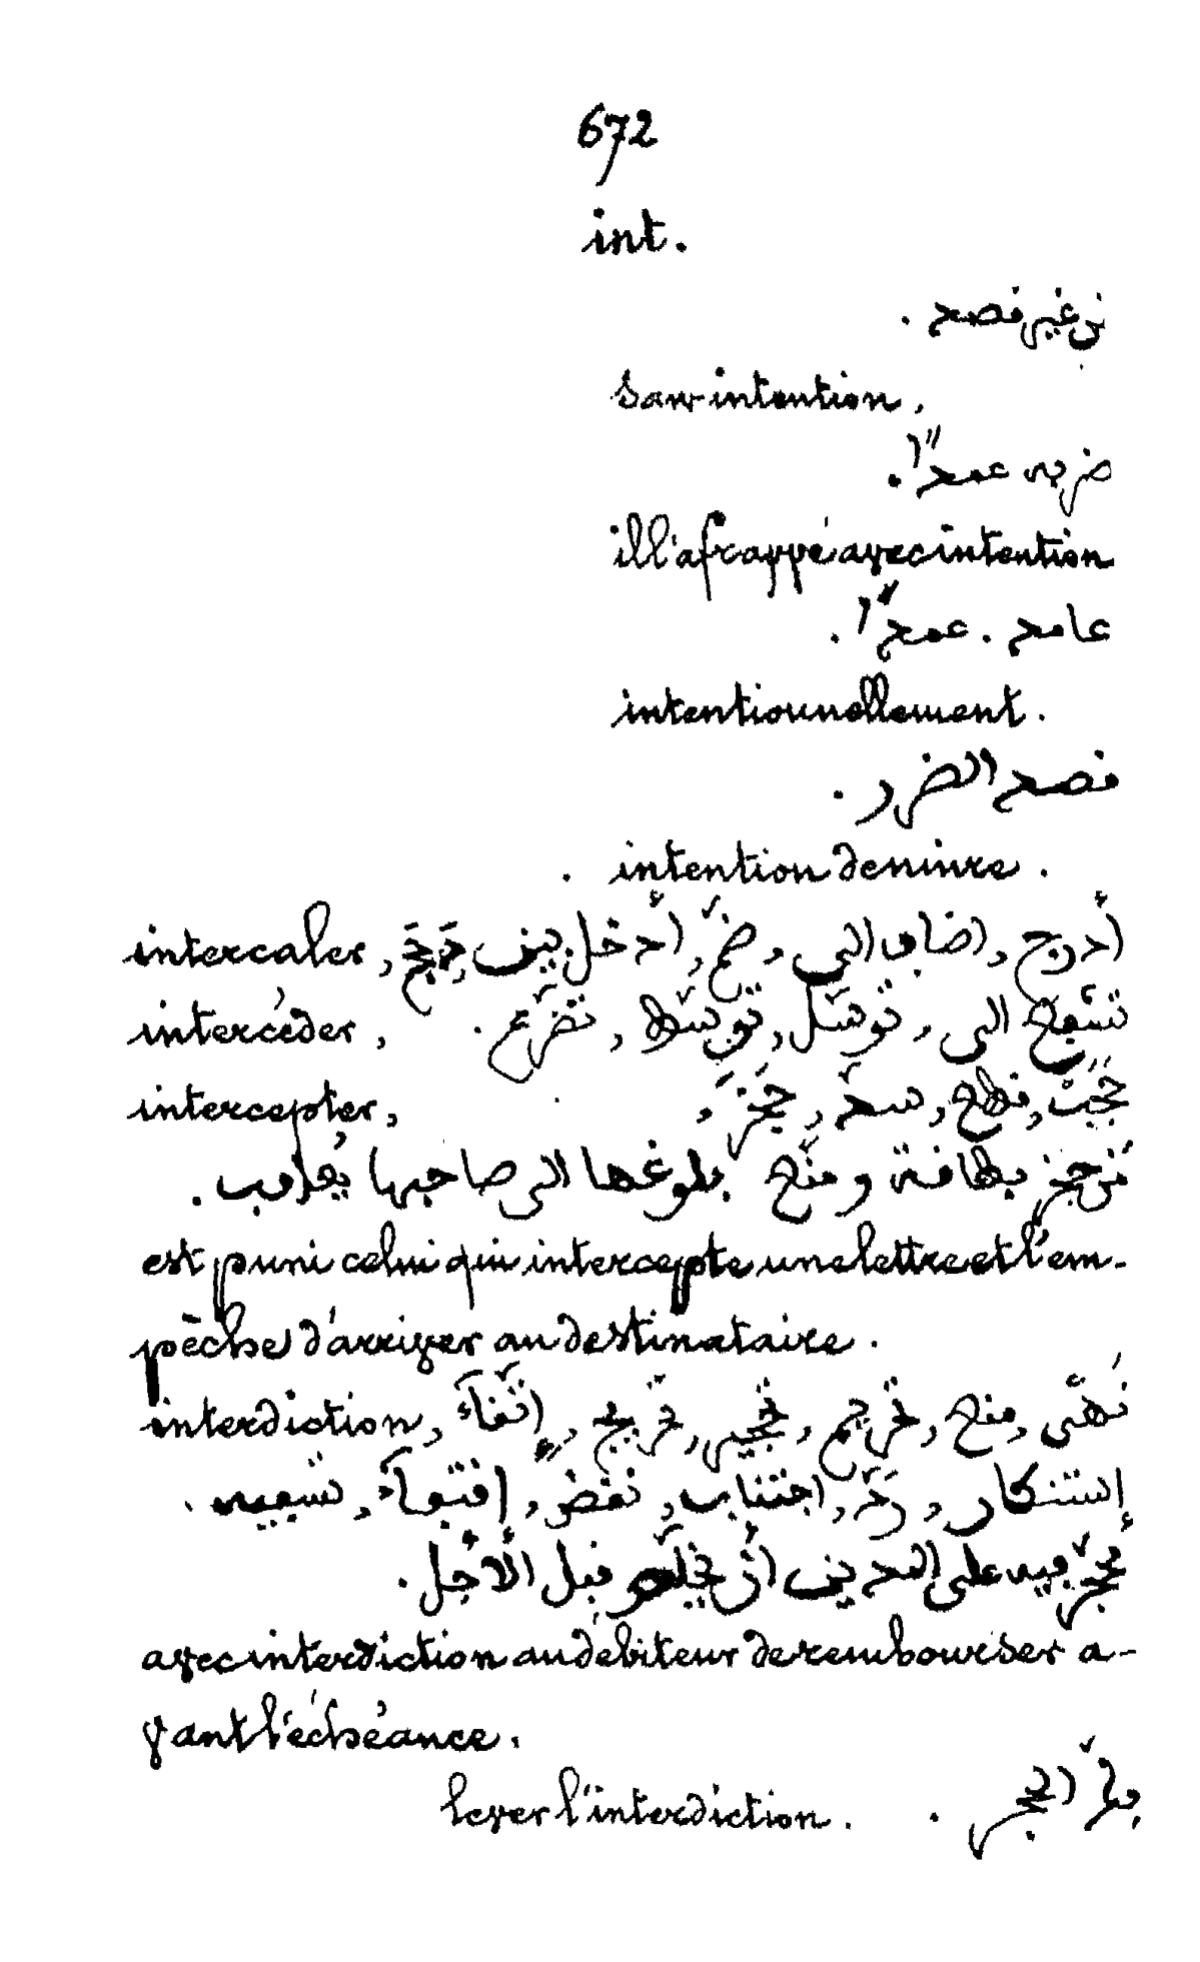 672
int.
من غير قصد .
sans intention,
ضربه عمدًا .
il l'a frappé avec intention
عامد . عمدًا .
intentionnellement.
قصد الضرر .
intention de nuire .
intercaler, أدرج , اضاف الى , ضمّ , أدخل بين
intercéder, تشفع الى , توسّل , توسّط , تضرّع .
intercepter, حجب , قطع , سدّ , حجز ,
من حجز بطاقة ومنع بلوغها الى صاحبها يعاقب .
est puni celui qui intercepte une lettre et l'em-
pêche d'arriver au destinataire .
interdiction, نهى , منع , تحريم , تحجير , تحريج , إتقاء
إستنكار , ردّ , اجتناب , نقض , تسفيه .
محجّر فيه على المدين أن قبل الأجل .
avec interdiction au débiteur de rembourser a-
vant l'échéance .
lever l'interdiction . فكّ الحجر .